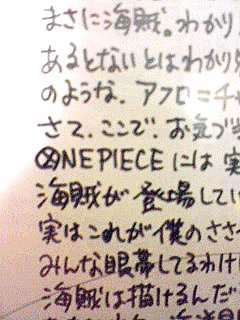 まさに海賊。わかり
あるとないとはわかり
のような、アフロ=チ
さて、ここで、お気づ
ⓍNEPIECEには実
海賊が登場してい
実はこれが僕のささ
みんな眼帯してるわけ
海賊は描けるんだ